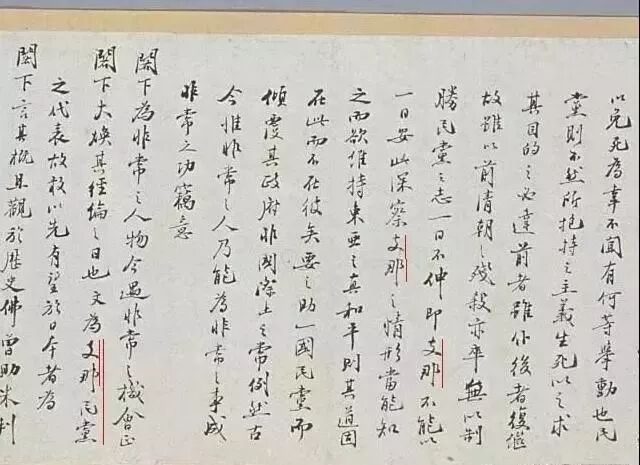 以免死為幸不聞有何等舉動也民
黨則不然所抱持之主義生死以之求
其目的之必達前者雖仆後者復繼
故雖以前清朝之殘殺亦卒無以制
勝民黨之志一日不伸即支那不能以
一日安此深察支那之情形當能知
之而欲維持東亞之真和平則其道固
在此而不在彼矣要之助一國民黨而
傾覆其政府非國際上之常例然古
今惟非常之人乃能為非常之事成
非常之功竊意
閣下為非常之人物今遇非常之機會正
閣下大煥其經綸之日也文為支那民黨
之代表故敢以先有望於日本者為
閣下言其概且觀於歷史佛曾助米利